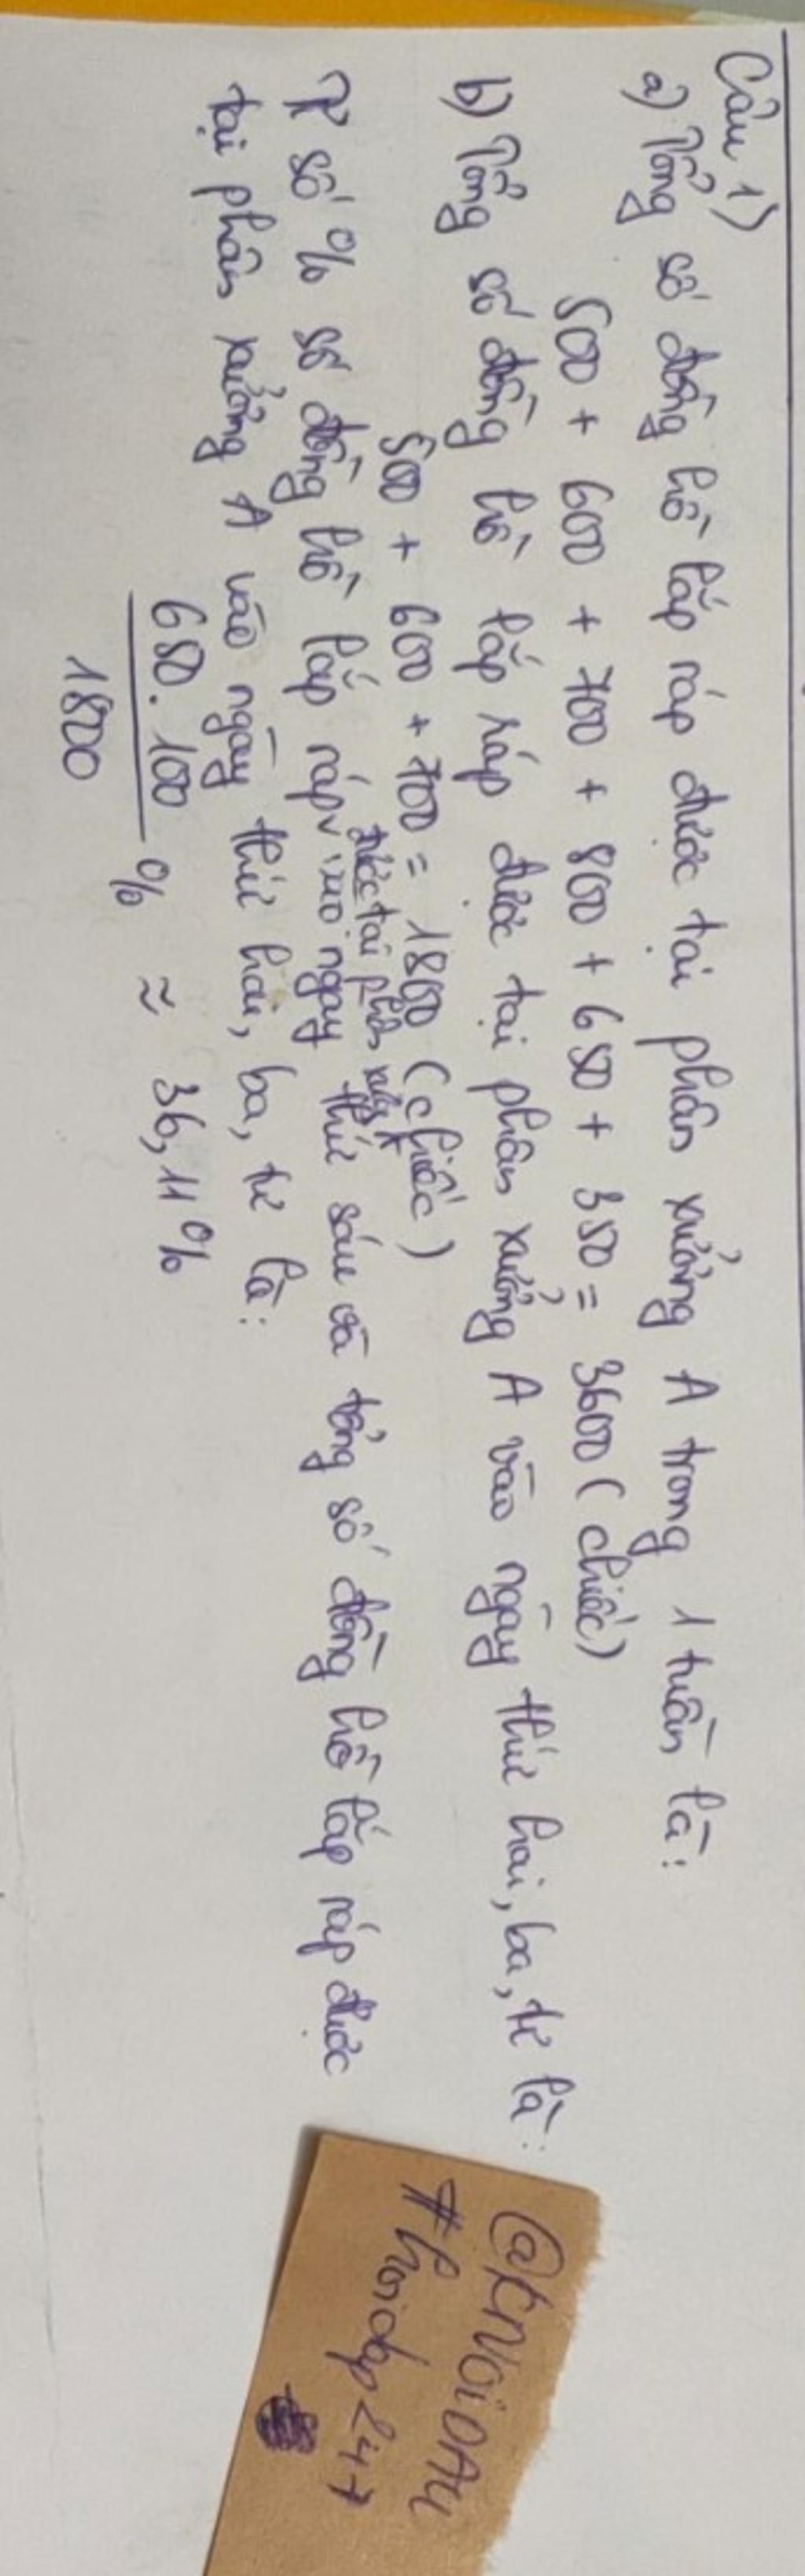 Câu 1)
a) Tổng số đồng hồ lắp ráp được tại phân xưởng A trong 1 tuần là:
500 + 600 + 700 + 800 + 650 + 350 = 3600 (chiếc)
b) Tổng số đồng hồ lắp ráp được tại phân xưởng A vào ngày thứ hai, ba, tư là:
500 + 600 + 700 = 1800 (chiếc)
được tại phân xưởng A
Tỉ số % số đồng hồ lắp ráp vào ngày thứ sáu và tổng số đồng hồ lắp ráp được
tại phân xưởng A vào ngày thứ hai, ba, tư là:
650 . 100
1800
% ≈ 36,11%
#hoidap247